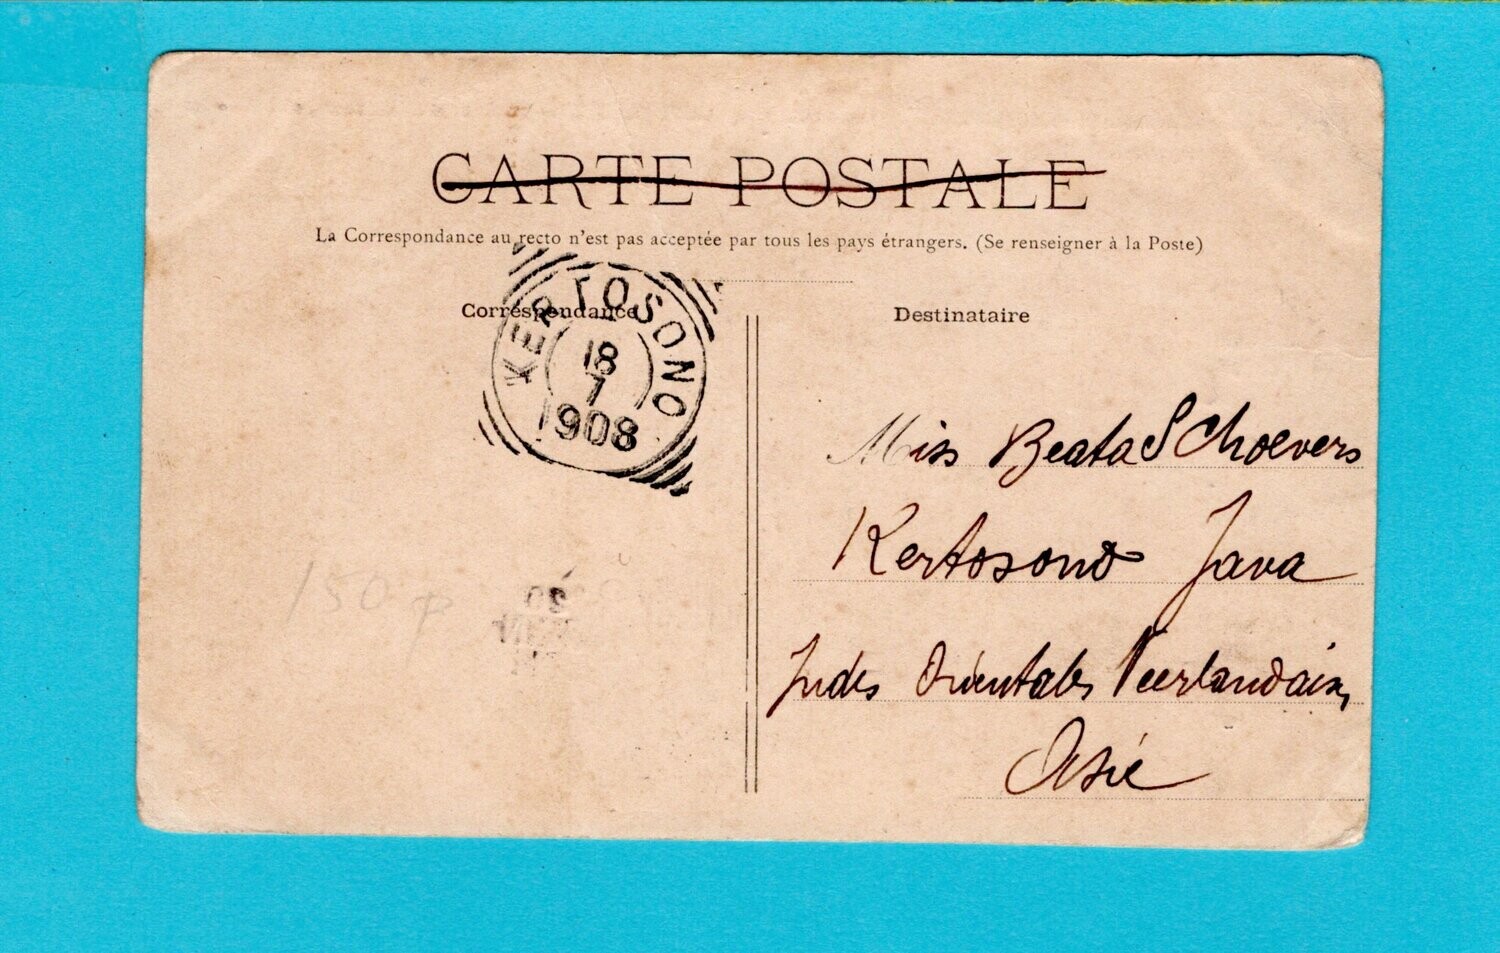 CARTE POSTALE
La Correspondance au recto n'est pas acceptée par tous les pays étrangers. (Se renseigner à la Poste)
Correspondance
Destinataire
KERTOSONO
18
7
1908
Miss Beata Schoevers
Kertosono Java
Indes Orientales Neerlandaises
Asie
150